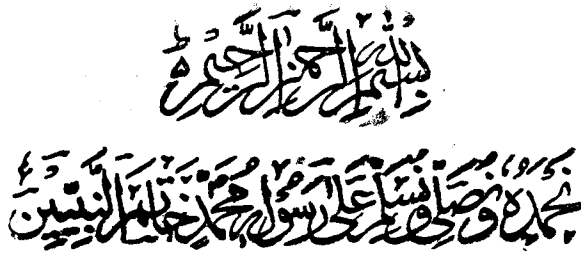 بِسْمِ اللّٰهِ الرَّحْمٰنِ الرَّحِيْمِ
نحمدہ ونصلی ونسلم علی رسولہ محمد خاتم النبیین